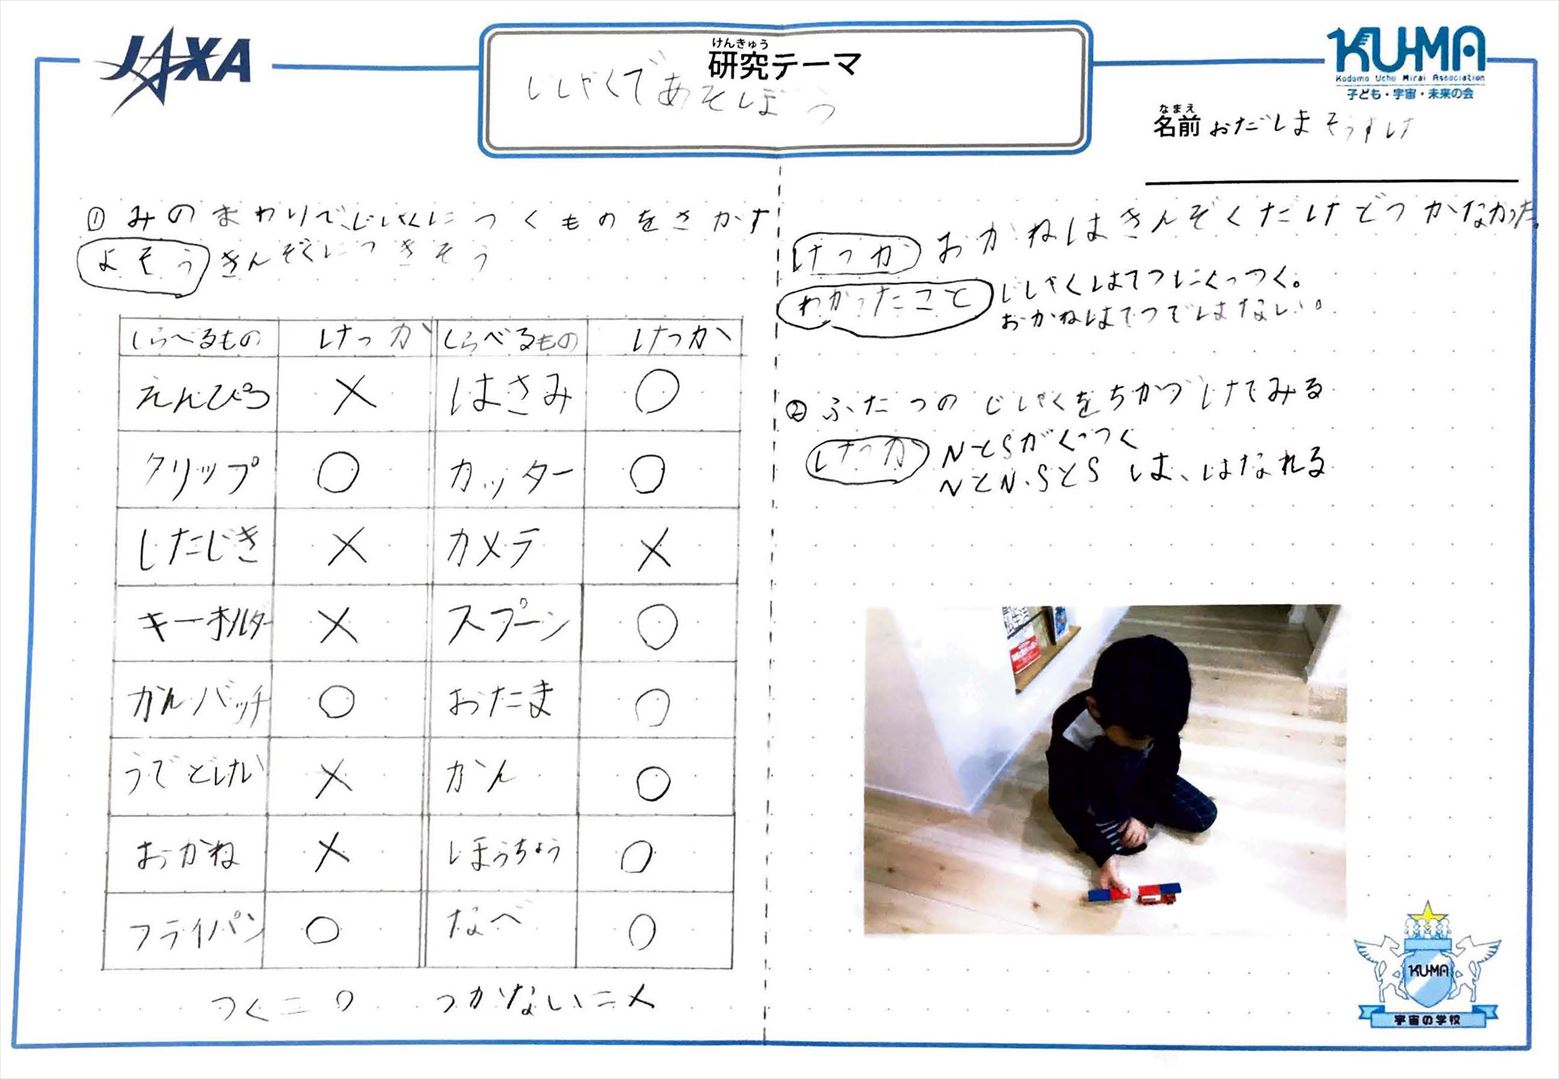 JAXA
けんきゅう
研究テーマ
じしゃくであそぼう
KU-MA
Kodomo Uchu Mirai Association
子ども・宇宙・未来の会
なまえ
名前 おだしまそうすけ
① みのまわりで、じしゃくにつくものをさがす
よそう きんぞくにつきそう
しらべるもの けっか しらべるもの けっか
えんぴつ × はさみ ○
クリップ ○ カッター ○
したじき × カメラ ×
キーホルダー × スプーン ○
かんバッチ ○ おたま ○
うでどけい × かん ○
おかね × ほうちょう ○
フライパン ○ なべ ○
つく=○ つかない=×
けっか おかねはきんぞくだけどつかなかった。
わかったこと じしゃくはてつにくっつく。
おかねはてつではない。
② ふたつのじしゃくをちかづけてみる
けっか NとSがくっつく
NとN、SとSは、はなれる
KU-MA
宇宙の学校